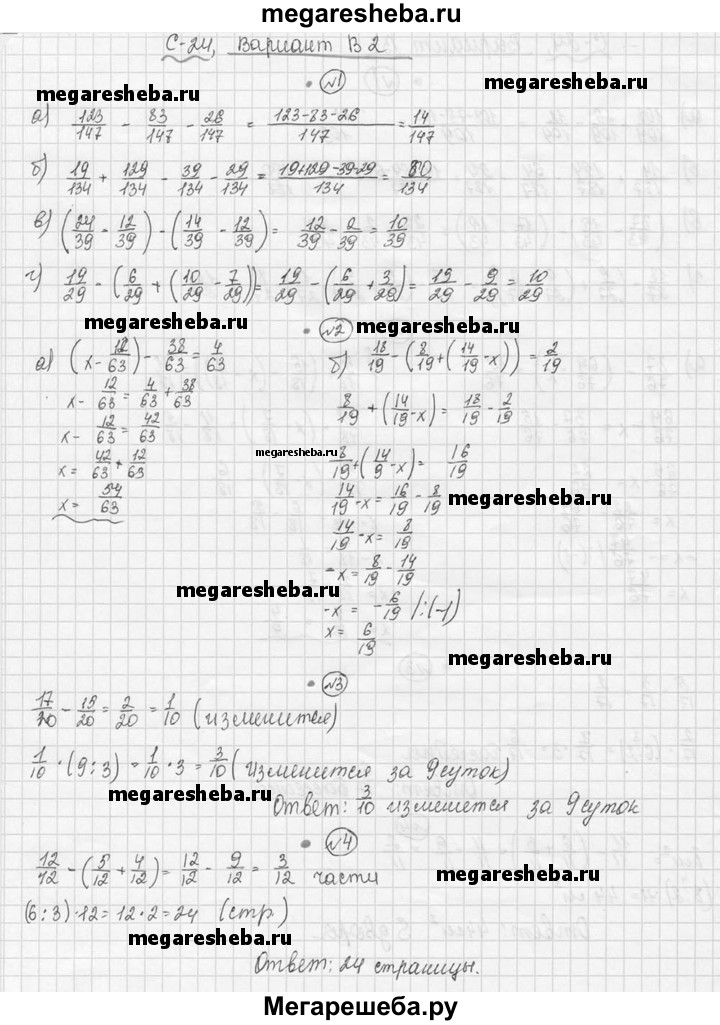 megaresheba.ru
С-24, Вариант В2
№1
megaresheba.ru
megaresheba.ru
а) 123/147 - 83/147 - 26/147 = (123-83-26)/147 = 14/147
б) 19/134 + 129/134 - 39/134 - 29/134 = (19+129-39-29)/134 = 80/134
в) (24/39 - 12/39) - (14/39 - 12/39) = 12/39 - 2/39 = 10/39
г) 19/29 - (6/29 + (10/29 - 7/29)) = 19/29 - (6/29 + 3/29) = 19/29 - 9/29 = 10/29
megaresheba.ru
№2
megaresheba.ru
а) (x - 12/63) - 38/63 = 4/63
x - 12/63 = 4/63 + 38/63
x - 12/63 = 42/63
x = 42/63 + 12/63
x = 54/63
б) 18/19 - (8/19 + (14/19 - x)) = 2/19
8/19 + (14/19 - x) = 18/19 - 2/19
megaresheba.ru
8/19 + (14/9 - x) = 16/19
14/19 - x = 16/19 - 8/19
megaresheba.ru
14/19 - x = 8/19
-x = 8/19 - 14/19
megaresheba.ru
-x = -6/19 /:(-1)
x = 6/19
megaresheba.ru
№3
17/20 - 15/20 = 2/20 = 1/10 (изменится)
1/10 · (9:3) = 1/10 · 3 = 3/10 (изменится за 9 суток)
megaresheba.ru
Ответ: 3/10 изменится за 9 суток
№4
12/12 - (5/12 + 4/12) = 12/12 - 9/12 = 3/12 части
megaresheba.ru
(6:3)·12 = 12·2 = 24 (стр)
megaresheba.ru
Ответ: 24 страницы.
Мегарешеба.ру